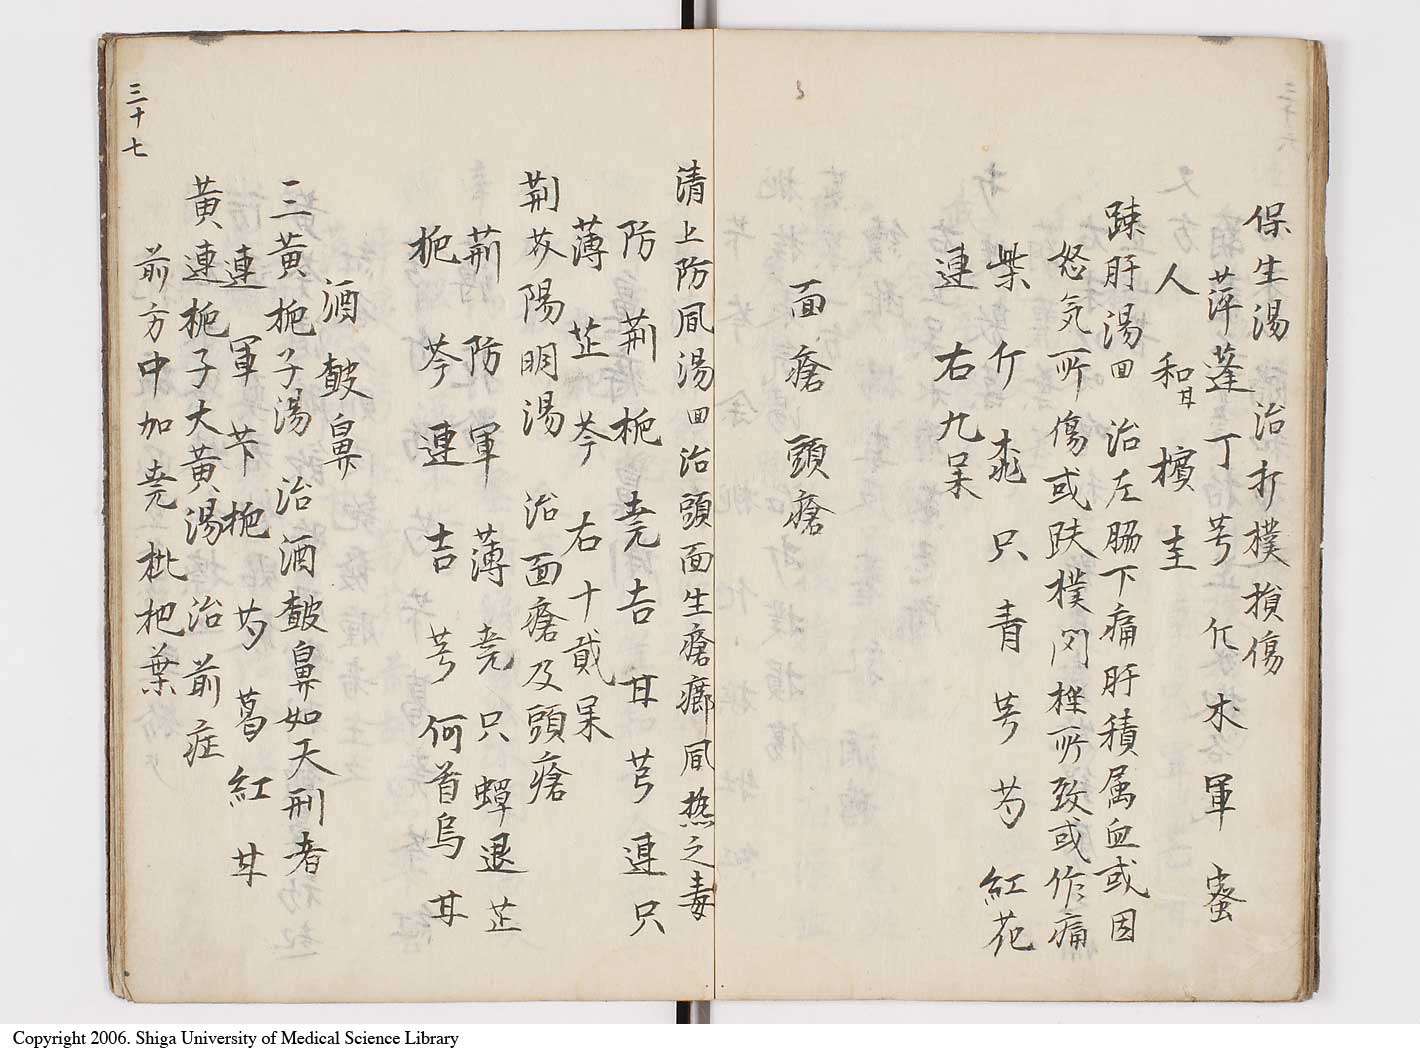 保生湯 治打撲損傷
萍蓬 丁 芎 木 軍 蜜
人 和 檳 圭
踈肝湯 回 治左脇下痛肝積属血或因
怒気所傷或跌撲閃挫所致或作痛
柴 个 桃 只 青 芎 芍 紅花
連 右九呆
面瘡 頭瘡
清上防風湯 回 治頭面生瘡癤風熱之毒
防 荆 梔 堯 吉 甘 芎 連 只
薄 芷 芩 右十貮呆
荆芥陽明湯 治面瘡及頭瘡
荆 防 軍 薄 堯 只 蟬退 芷
梔 芩 連 吉 芎 何首烏 甘
酒皶鼻
三黄梔子湯 治酒皶鼻如天刑者
連 軍 芐 梔 芍 葛 紅 甘
黄連梔子大黄湯 治前症
前方中加堯 枇杷葉
三十七
Copyright 2006. Shiga University of Medical Science Library